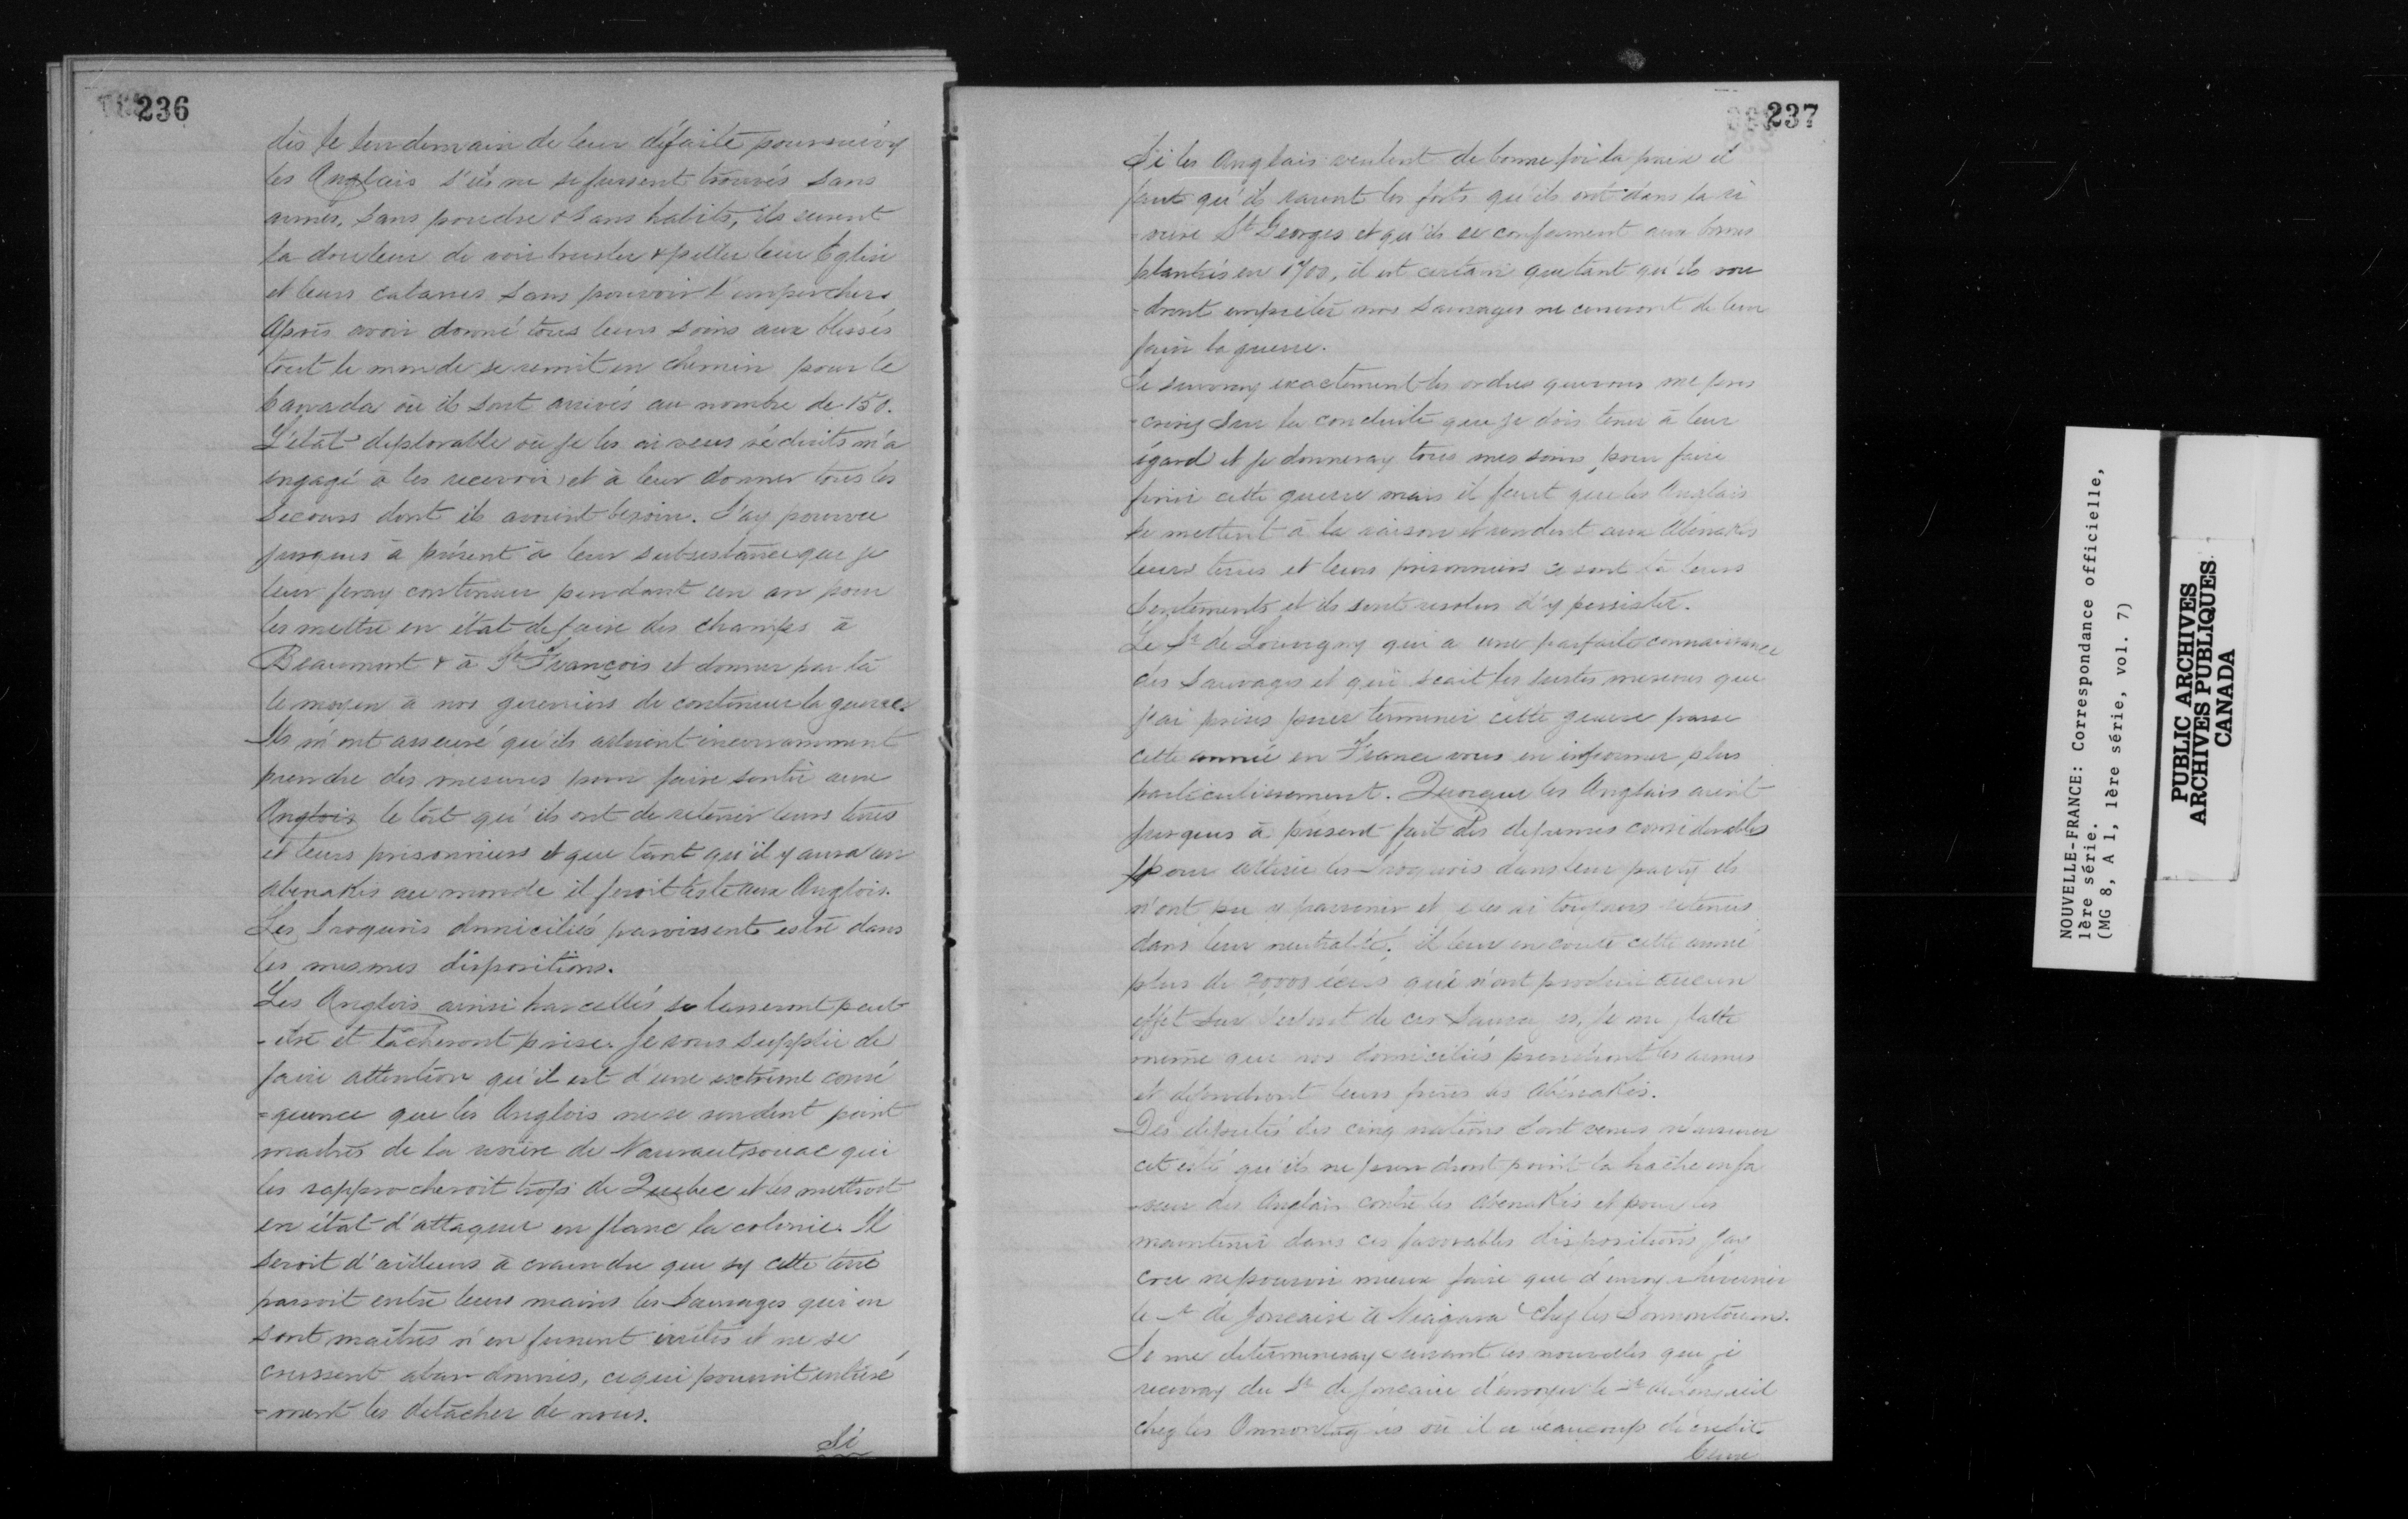 236
dès le lendemain de leur défaite poursuivy
les Anglais s'ils ne se fussent trouvés sans
armes, sans poudre & sans habits, ils eurent
la douleur de voir brusler & piller leur Eglise
et leurs cabanes sans pouvoir l'empescher.
Après avoir donné tous leurs soins aux blessés
tout le monde se remit en chemin pour le
Canada où ils sont arrivés au nombre de 150.
L'état déplorable où je les ai veus réduits m'a
engagé à les recevoir et à leur donner tous les
secours dont ils avoient besoin. J'ay pourveu
jusques à présent à leur subsistance que je
leur feray continuer pendant un an pour
les mettre en état de faire des champs à
Beaumont & à St François et donner par là
le moyen à nos guerriers de continuer la guerre.
Ils m'ont asseuré qu'ils alloient incessamment
prendre des mesures pour faire sentir aux
Anglois le tort qu'ils ont de retenir leurs terres
et leurs prisonniers et que tant qu'il y aura un
abenakis au monde il feroit teste aux Anglois.
Les Iroquois domiciliés paroissent estre dans
les mesmes dispositions.
Les Anglois ainsi harcellés se lasseront peut
-être et lâcheront prise. Je vous supplie de
faire attention qu'il est d'une extrême consé
=quence que les Anglois ne se rendent point
maitres de la rivière de Narantsouac qui
les rapprocheroit trop de Quebec et les mettroit
en état d'attaquer en flanc la colonie. Il
seroit d'ailleurs à craindre que sy cette terre
passoit entre leurs mains les Sauvages qui en
sont maîtres n'en fussent irrités et ne se
crussent abandonnés, ce qui pourroit entière
=ment les détacher de nous.
Si
237
Si les Anglais veulent de bonne foi la paix il
faut qu'ils rasent les forts qu'ils ont dans la ri
=vière St Georges et qu'ils se conforment aux bornes
plantées en 1700, il est certain que tant qu'ils vou
-dront empiéter nos sauvages ne cesseront de leur
faire la guerre.
Je suivray exactement les ordres que vous me pres
-crirez sur la conduite que je dois tenir à leur
égard et je donneray tous mes soins pour faire
finir cette guerre mais il faut que les Anglais
se mettent à la raison et rendent aux Abénakis
leurs terres et leurs prisonniers ce sont là leurs
sentements et ils sont resolus d'y persister.
Le Sr de Louvigny qui a une parfaite connaissance
des Sauvages et qui scait les justes mesures que
j'ai prises pour terminer cette guerre passe
cette année en France vous en informer plus
particulierement. Quoique les Anglais aient
jusques à présent fait des depenses considerables
pour attirer les Iroquois dans leur party ils
n'ont pu y parvenir et je les ai toujours retenus
dans leur neutralité, il leur en coute cette année
plus de 20,000 écus qui n'ont produit aucun
effet sur l'esprit de ces Sauvages, je me flatte
même que nos domiciliés prendront les armes
et défendront leurs frères les Abénakis.
Des députés des cinq nations sont venus m'assurer
cet esté qu'ils ne prendront point la hache en fa
-veur des Anglais contre les abenakis et pour les
maintenir dans ces favorables dispositions j'ay
cru ne pouvoir mieux faire que d'envoyer hiverner
le Sr de Joncaire à Niagara chez les Sonnontouans.
Je me determineray suivant les nouvelles que je
recevray du Sr de Joncaire d'envoyer le Sr de Longueil
chez les Onnontagués où il a beaucoup de credit.
NOUVELLE-FRANCE: Correspondance officielle,
1ère série.
(MG 8, A 1, 1ère série, vol. 7)
PUBLIC ARCHIVES
ARCHIVES PUBLIQUES
CANADA